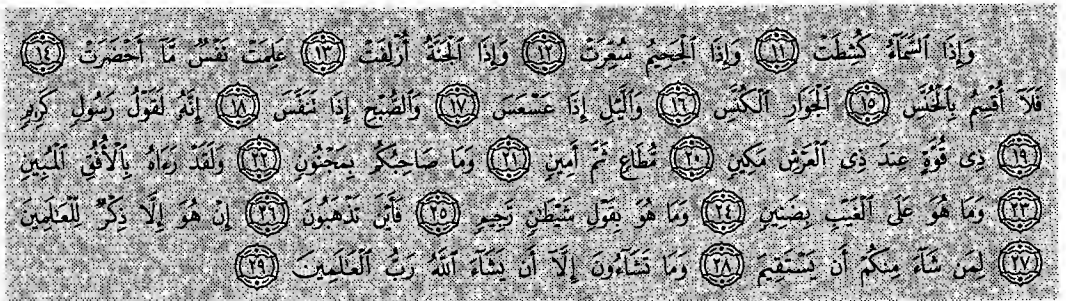 وَإِذَا ٱلسَّمَآءُ كُشِطَتْ ١١ وَإِذَا ٱلْجَحِيمُ سُعِّرَتْ ١٢ وَإِذَا ٱلْجَنَّةُ أُزْلِفَتْ ١٣ عَلِمَتْ نَفْسٌ مَّآ أَحْضَرَتْ ١٤
فَلَآ أُقْسِمُ بِٱلْخُنَّسِ ١٥ ٱلْجَوَارِ ٱلْكُنَّسِ ١٦ وَٱلَّيْلِ إِذَا عَسْعَسَ ١٧ وَٱلصُّبْحِ إِذَا تَنَفَّسَ ١٨ إِنَّهُۥ لَقَوْلُ رَسُولٍ كَرِيمٍ
١٩ ذِى قُوَّةٍ عِندَ ذِى ٱلْعَرْشِ مَكِينٍ ٢٠ مُّطَاعٍ ثَمَّ أَمِينٍ ٢١ وَمَا صَاحِبُكُم بِمَجْنُونٍ ٢٢ وَلَقَدْ رَءَاهُ بِٱلْأُفُقِ ٱلْمُبِينِ
٢٣ وَمَا هُوَ عَلَى ٱلْغَيْبِ بِضَنِينٍ ٢٤ وَمَا هُوَ بِقَوْلِ شَيْطَٰنٍ رَّجِيمٍ ٢٥ فَأَيْنَ تَذْهَبُونَ ٢٦ إِنْ هُوَ إِلَّا ذِكْرٌ لِّلْعَٰلَمِينَ
٢٧ لِمَن شَآءَ مِنكُمْ أَن يَسْتَقِيمَ ٢٨ وَمَا تَشَآءُونَ إِلَّآ أَن يَشَآءَ ٱللَّهُ رَبُّ ٱلْعَٰلَمِينَ ٢٩